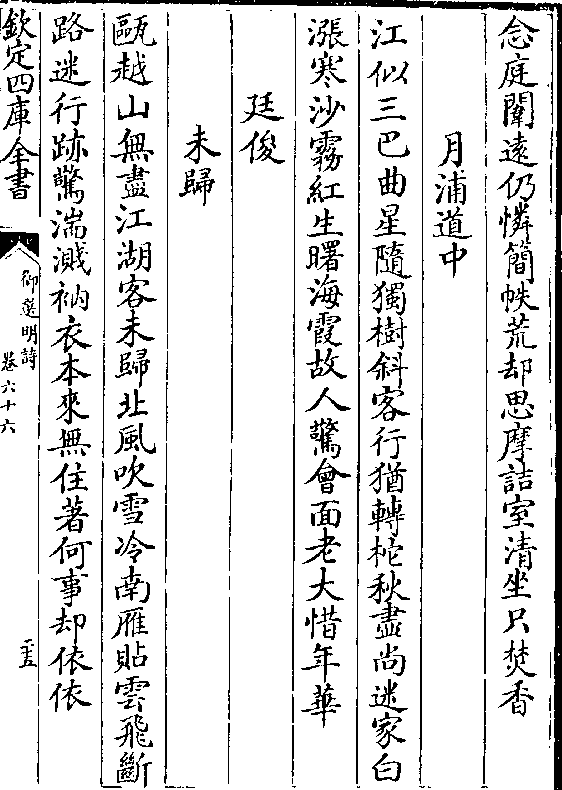 念庭闈遠仍憐簡帙荒却思摩詰室清坐只焚香
月浦道中
江似三巴曲星隨獨樹斜客行猶轉柁秋盡尚迷家白
漲寒沙霧紅生曙海霞故人驚會面老大惜年華
廷俊
未歸
甌越山無盡江湖客未歸北風吹雪冷南雁貼雲飛斷
路迷行跡驚湍濺衲衣本來無住著何事却依依
欽定四庫全書
御選明詩
卷六十六
二十五